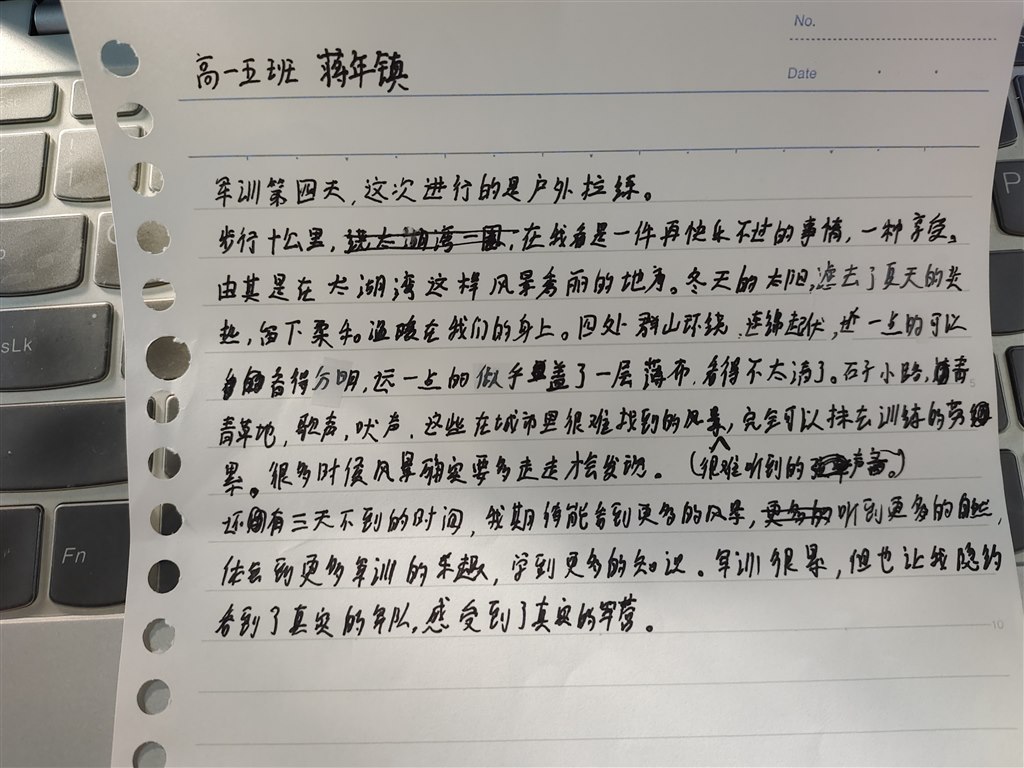 No.
Date
高一五班 蒋年镇
军训第四天,这次进行的是户外拉练。
步行十公里,在我看是一件再快乐不过的事情,一种享受。
由其是在太湖湾这样风景秀丽的地方。冬天的太阳,滤去了夏天的炎
热,留下柔和。温暖在我们的身上。四处群山环绕,连绵起伏,近一点的可以
看得分明,远一点的似乎盖了一层薄布,看得不太清了。石子小路,
青草地,歌声,吠声,这些在城市里很难找到的风景,完全可以抹去训练的劳
累。很多时候风景确实要多走走才会发现。(很难听到的声音。)
还有三天不到的时间,我期待能看到更多的风景,听到更多的自然,
体会到更多军训的乐趣,学到更多的知识。军训很累,但也让我隐约
看到了真实的军队,感受到了真实的军营。
5
10
sLk
Fn
P